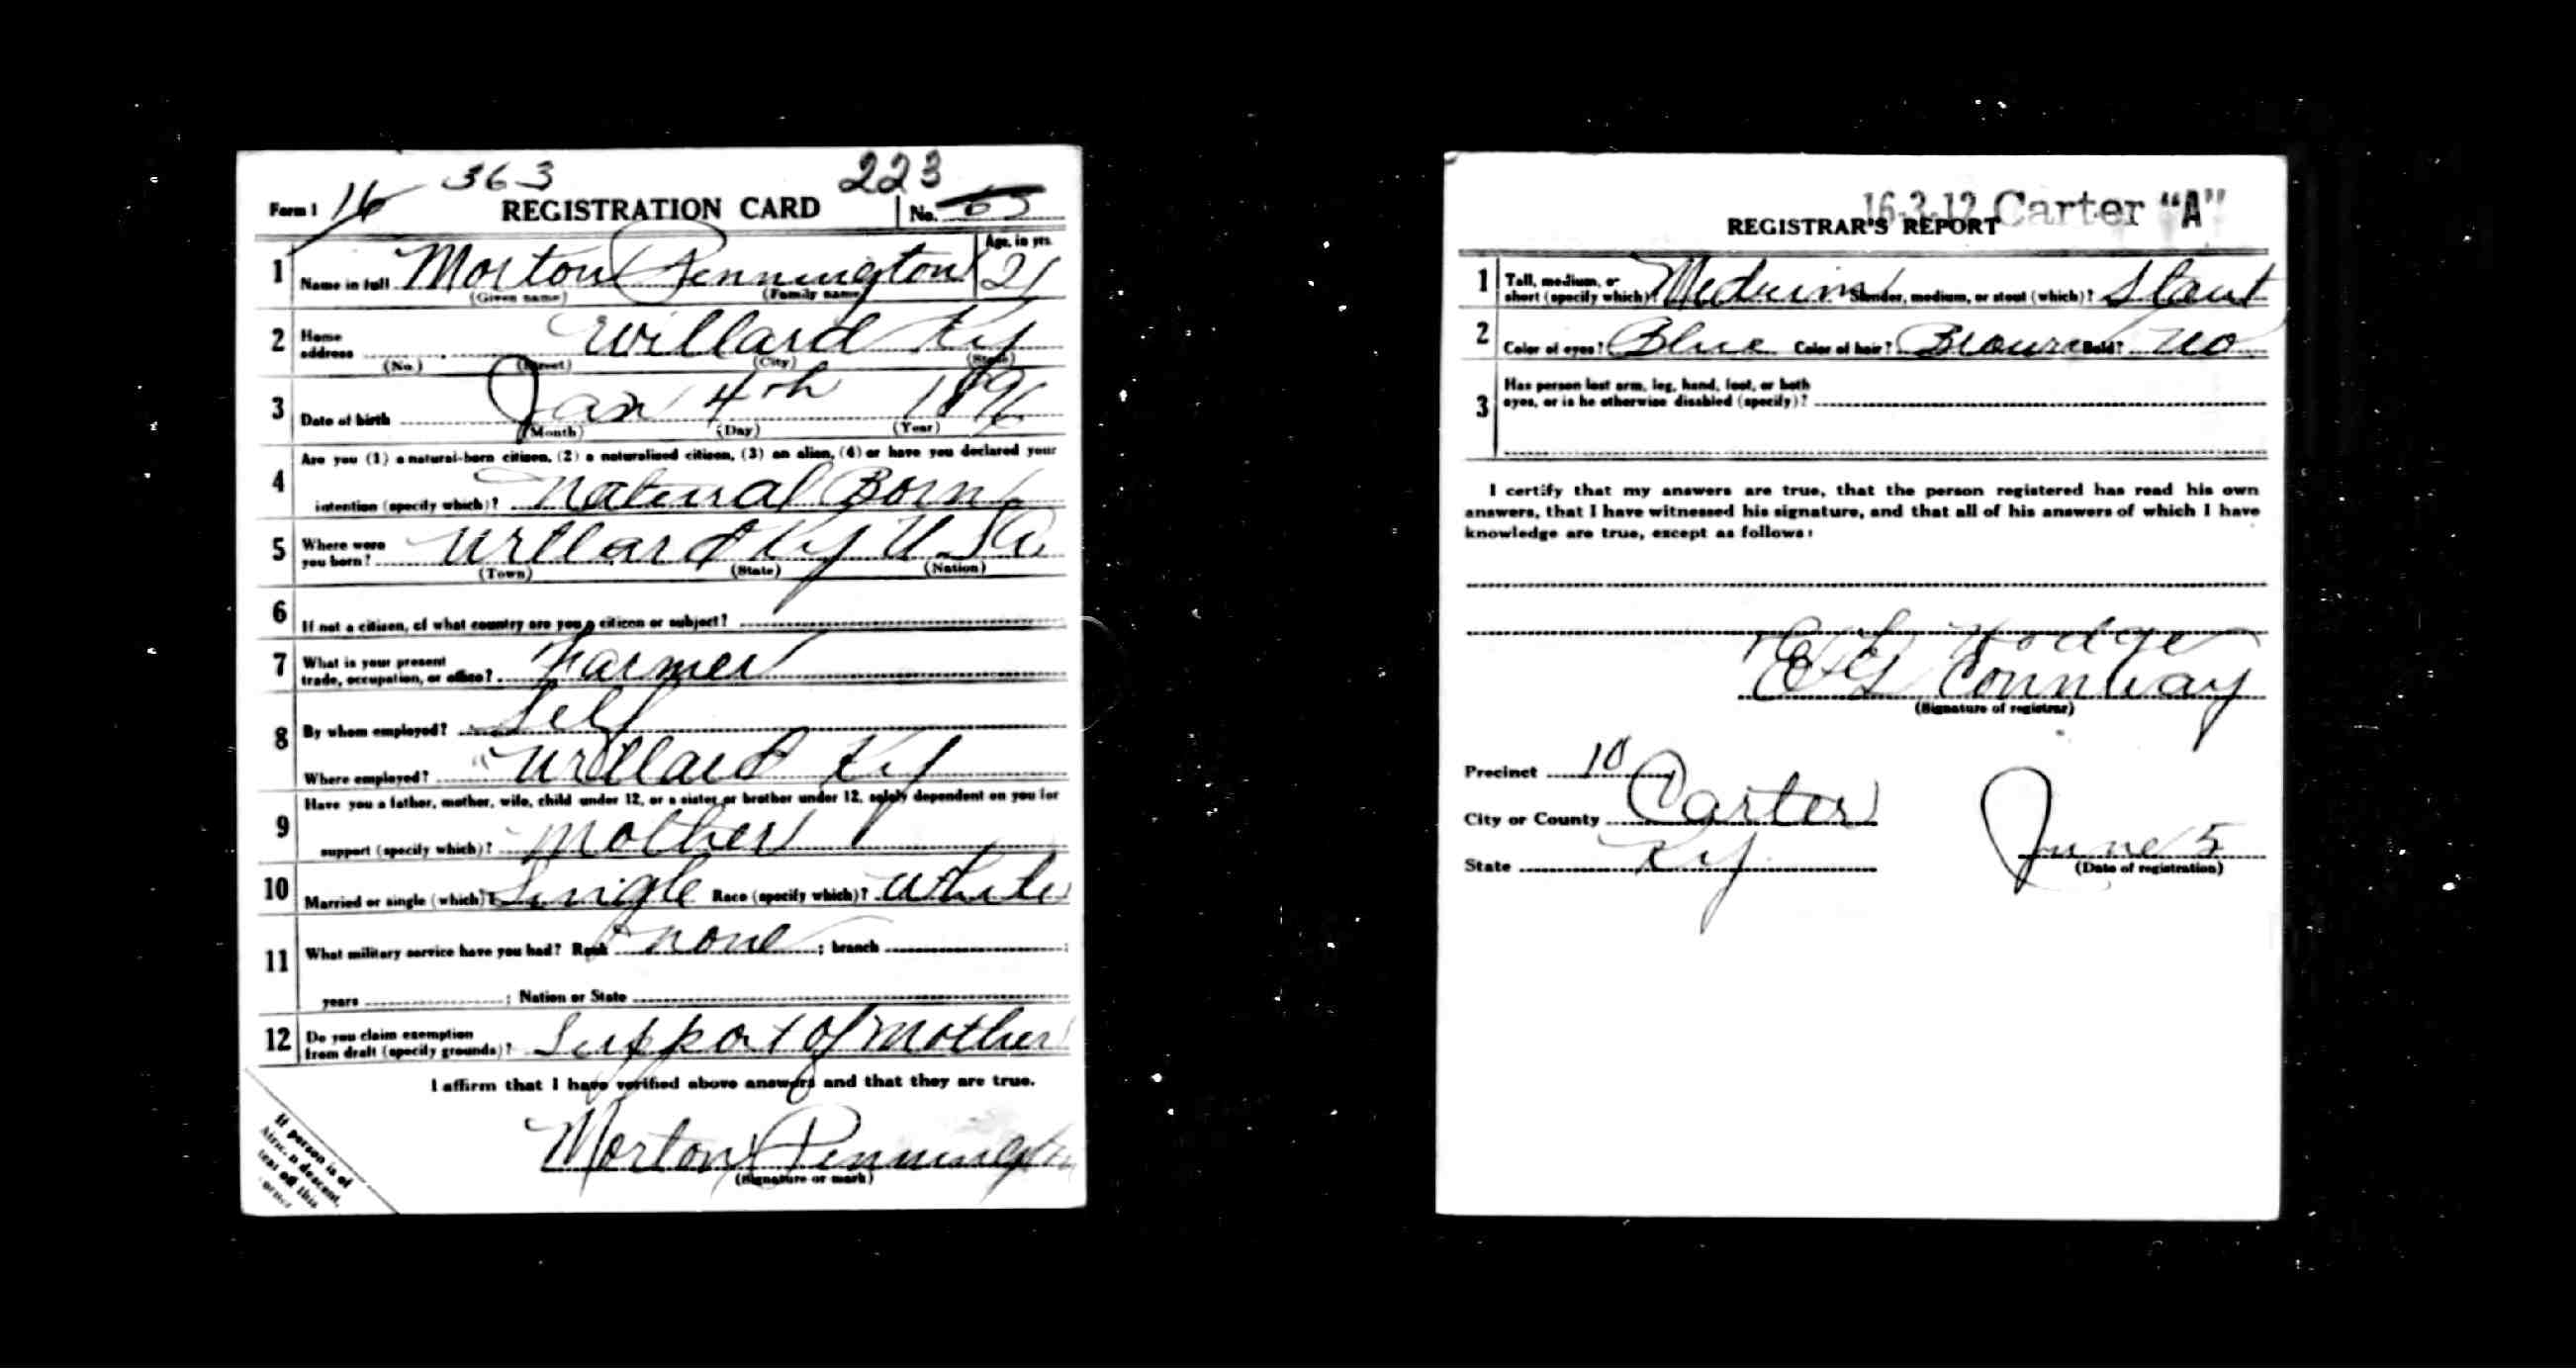 363 223
Form 1 16 REGISTRATION CARD No. 65
1 Name in full Morton Pennington Age, in yrs. 21
(Given name) (Family name)
2 Home address Willard Ky
(No.) (Street) (City) (State)
3 Date of birth Jan 4th 1896
(Month) (Day) (Year)
4 Are you (1) a natural-born citizen, (2) a naturalized citizen, (3) an alien, (4) or have you declared your
intention (specify which)? Natural Born
5 Where were you born? Willard Ky USA
(Town) (State) (Nation)
6 If not a citizen, of what country are you a citizen or subject?
7 What is your present trade, occupation, or office? Farmer
8 By whom employed? Self
Where employed? Willard Ky
9 Have you a father, mother, wife, child under 12, or a sister or brother under 12, solely dependent on you for
support (specify which)? Mother
10 Married or single (which)? Single Race (specify which)? White
11 What military service have you had? Rank none ; branch ;
years ; Nation or State
12 Do you claim exemption from draft (specify grounds)? Support of Mother
I affirm that I have verified above answers and that they are true.
Morton Pennington
(Signature or mark)
If person is of
African descent,
tear off this
corner
16-3-12 Carter "A"
REGISTRAR'S REPORT
1 Tall, medium, or short (specify which)? Medium Slender, medium, or stout (which)? Stout
2 Color of eyes? Blue Color of hair? Brown Bald? No
3 Has person lost arm, leg, hand, foot, or both
eyes, or is he otherwise disabled (specify)?
I certify that my answers are true, that the person registered has read his own
answers, that I have witnessed his signature, and that all of his answers of which I have
knowledge are true, except as follows:
Hodge
Connway
(Signature of registrar)
Precinct 10
City or County Carter
State Ky
June 5
(Date of registration)